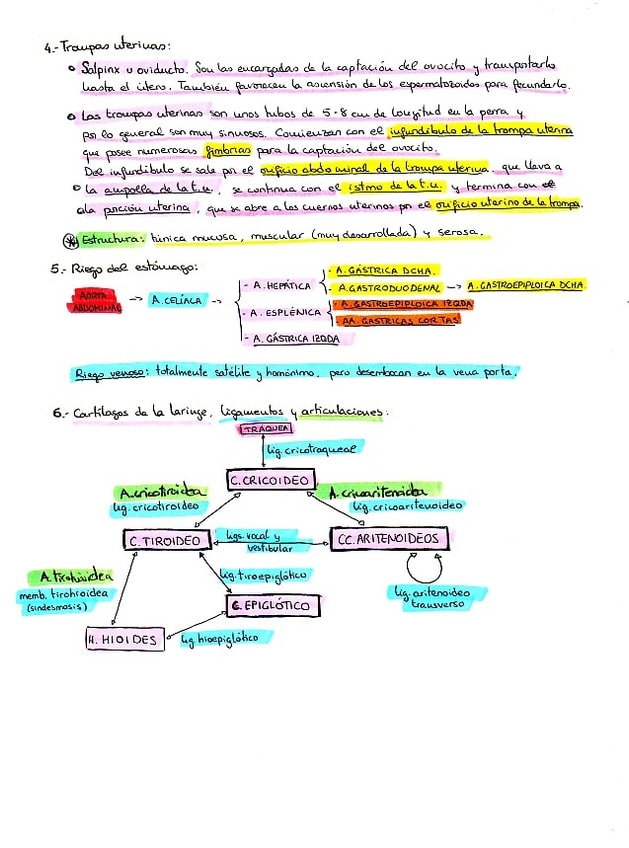 4.- Trompas uterinas:
Salpinx u oviducto. Son las encargadas de la captación del ovocito y transportarlo
hasta el útero. También favorecen la ascensión de los espermatozoides para fecundarlo.
Las trompas uterinas son unos tubos de 5-8 cm de longitud en la perra y
por lo general son muy sinuosos. Comienzan con el infundíbulo de la trompa uterina
que posee numerosas fimbrias para la captación del ovocito.
Del infundíbulo se sale por el orificio abdominal de la trompa uterina, que lleva a
la ampolla de la t.u., se continua con el istmo de la t.u. y termina con
la porción uterina, que se abre a los cuernos uterinos por el orificio uterino de la trompa.
Estructura: túnica mucosa, muscular (muy desarrollada) y serosa.
5.- Riego del estómago:
AORTA ABDOMINAL → A. CELÍACA →
- A. HEPÁTICA
- A. GÁSTRICA DCHA.
- A. GASTRODUODENAL → A. GASTROEPIPLOICA DCHA.
- A. ESPLÉNICA
- A. GASTROEPIPLOICA IZQDA
- AA. GASTRICAS CORTAS
- A. GÁSTRICA IZQDA
Riego venoso: totalmente satélite y homónimo, pero desembocan en la vena porta.
6.- Cartílagos de la laringe, ligamentos y articulaciones:
TRÁQUEA
lig. cricotraqueal
C. CRICOIDEO
A. cricotiroidea
lig. cricotiroideo
A. cricoaritenoidea
lig. cricoaritenoideo
C. TIROIDEO
ligs. vocal y
vestibular
CC. ARITENOIDEOS
A. tirohioidea
memb. tirohioidea
(sindesmosis)
lig. tiroepiglótico
lig. aritenoideo
transverso
C. EPIGLÓTICO
H. HIOIDES
lig. hioepiglótico